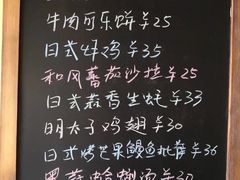 牛肉可乐饼¥25
日式炸鸡¥35
和风蕃茄沙拉¥25
日式蒜香生蚝¥33
明太子鸡翅¥30
日式烤芒果鳗鱼批萨¥36
蛤蜊汤¥30